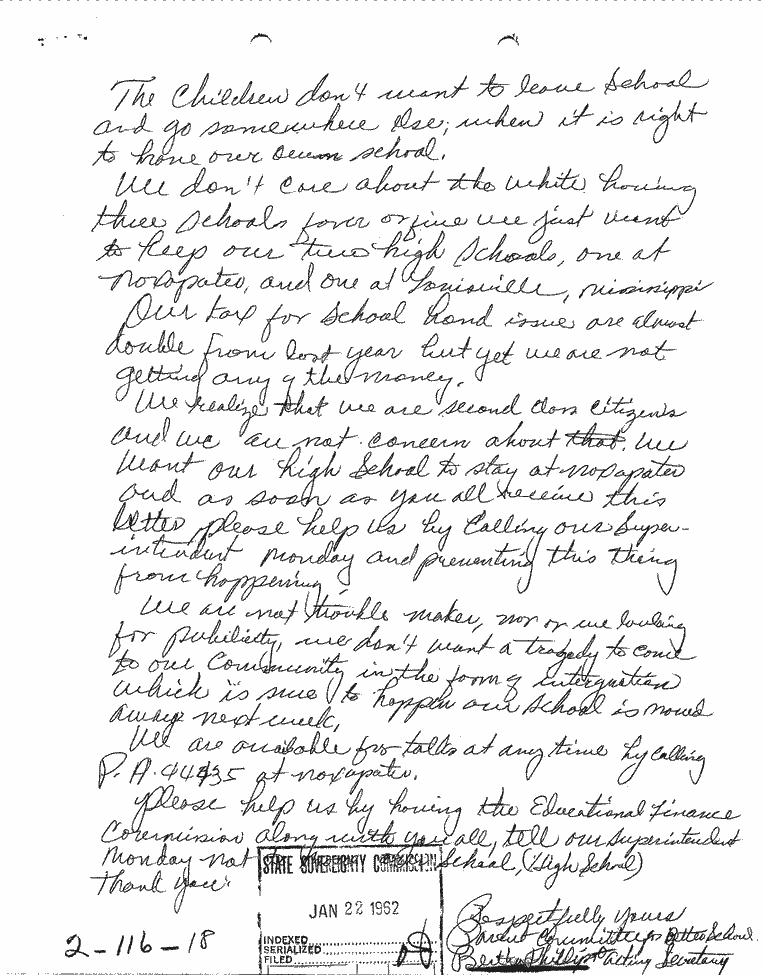 The Children don't want to leave School
and go somewhere else, when it is right
to have our own school.
We don't care about the white having
three schools four or five we just want
to keep our two high schools, one at
noxapater, and one at Louisville, Mississippi
Our tax for School bond issue are almost
double from last year but yet we are not
getting any of the money.
We realize that we are second class citizens
and we are not concern about that. We
want our high School to stay at noxapater
and as soon as you all receive this
letter, please help us by calling our Super-
intendent Monday and preventing this thing
from happening.
We are not trouble maker, nor are we looking
for publicity, we don't want a tragedy to come
to our Community in the form of intergration
which is sure to happen our School is moved
away next week.
We are available for talks at any time by calling
P.A. 44435 at noxapater.
Please help us by having the Educational Finance
Commission along with you all, tell our superintendent
Monday not School, (High School)
Thank you.
STATE SOVEREIGNTY COMMISSION
JAN 22 1962
INDEXED
SERIALIZED
FILED
2-116-18
Respectfully yours
Parent Committee for Better School.
Acting Secretary